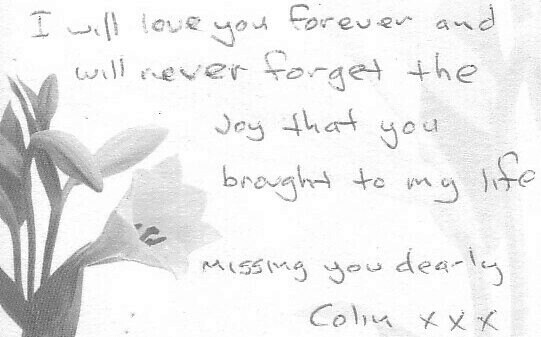 I will love you forever and
will never forget the
Joy that you
brought to my life
missing you dearly
Colin xxx